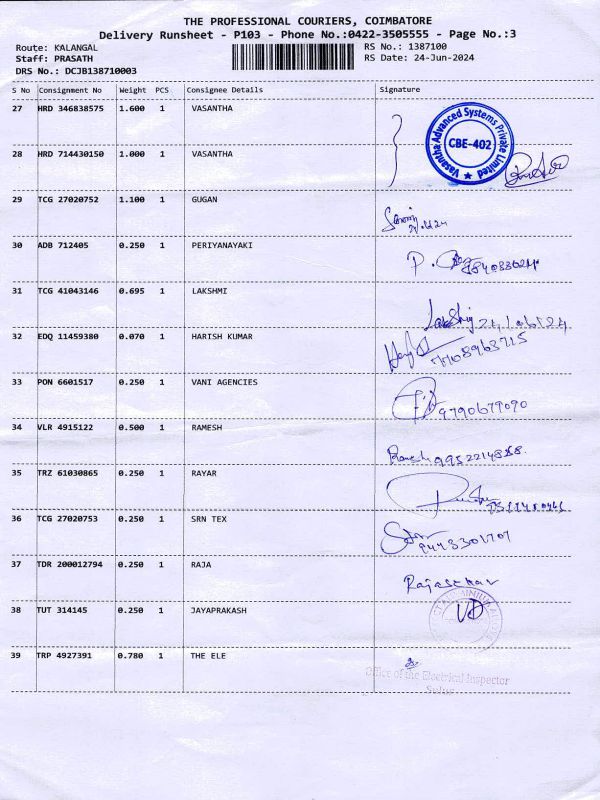 THE PROFESSIONAL COURIERS, COIMBATORE
Delivery Runsheet - P103 - Phone No.:0422-3505555 - Page No.:3
Route: KALANGAL
RS No.: 1387100
Staff: PRASATH
RS Date: 24-Jun-2024
DRS No.: DCJB138710003
S No Consignment No Weight PCS Consignee Details Signature
27 HRD 346838575 1.600 1 VASANTHA
Vasantha Advanced Systems Private Limited
CBE-402
28 HRD 714430150 1.000 1 VASANTHA
29 TCG 27020752 1.100 1 GUGAN
30 ADB 712405 0.250 1 PERIYANAYAKI
31 TCG 41043146 0.695 1 LAKSHMI
24/06/24
32 EDQ 11459380 0.070 1 HARISH KUMAR
7708963715
33 PON 6601517 0.250 1 VANI AGENCIES
9790679090
34 VLR 4915122 0.500 1 RAMESH
35 TRZ 61030865 0.250 1 RAYAR
36 TCG 27020753 0.250 1 SRN TEX
37 TDR 200012794 0.250 1 RAJA
38 TUT 314145 0.250 1 JAYAPRAKASH
39 TRP 4927391 0.780 1 THE ELE
Office of the Electrical Inspector